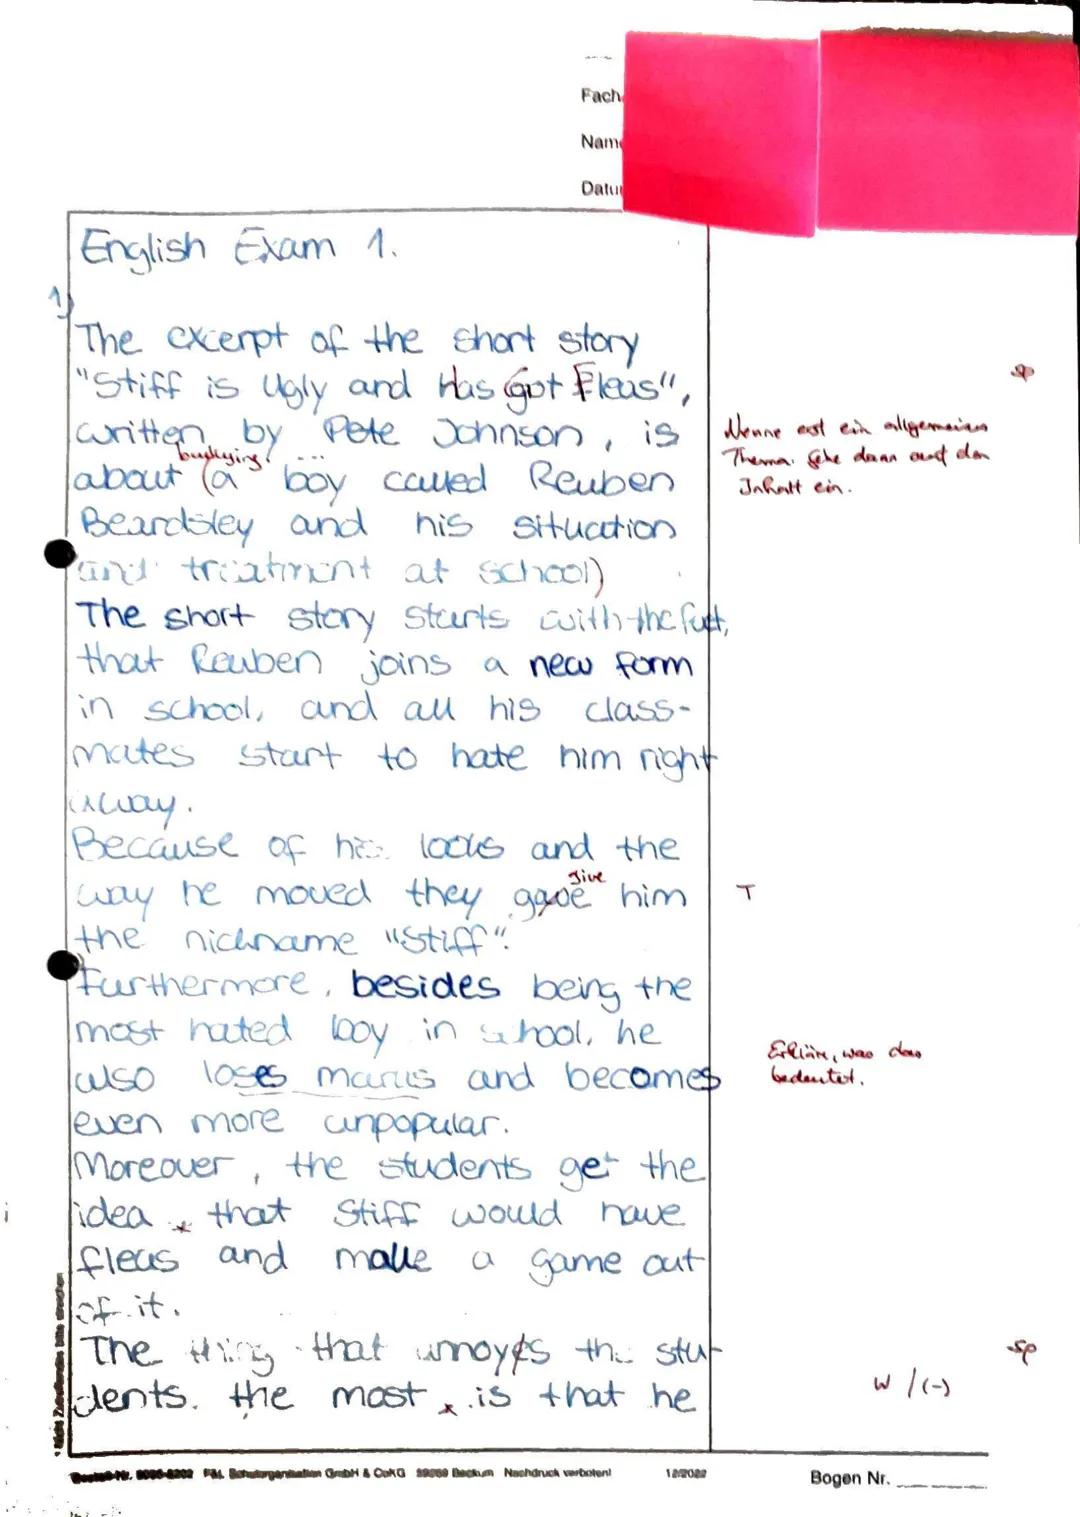 Fach
Name
Datu
English Exam 1.
1)
The excerpt of the short story
"Stiff is Ugly and Has Got Fleas",
sp
written by Pete Johnson, is
Nenne erst ein allgemeines
Thema. Gehe dann auf den
Inhalt ein.
bullying
about (a boy called Reuben
Beardsley and his situation
and treatment at school)
The short story starts with the fact,
that Reuben joins a new form
in school, and all his class-
mates start to hate him right
away.
Because of his looks and the
give
way he moved they gave him
T
the nickname "Stiff".
Furthermore, besides being the
most hated boy in school, he
Erkläre, was das
bedeutet.
also loses marks and becomes
even more unpopular.
Moreover, the students get the
idea * that Stiff would have
fleas and make a game out
of it.
The thing that annoyes the stu-
sp
dents. the most * is that he
W / (-)
* Nicht Zutreffendes bitte streichen
Bestell-Nr. 8095-8202 F&L Schulorganisation GmbH & CoKG 59269 Beckum Nachdruck verboten! 12/2022
Bogen Nr.